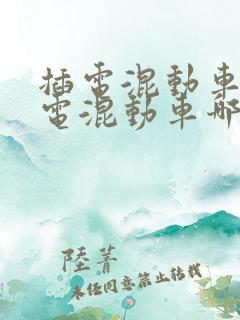 插電混動車
電混動車哪
陸菁
未經同意禁止轉載